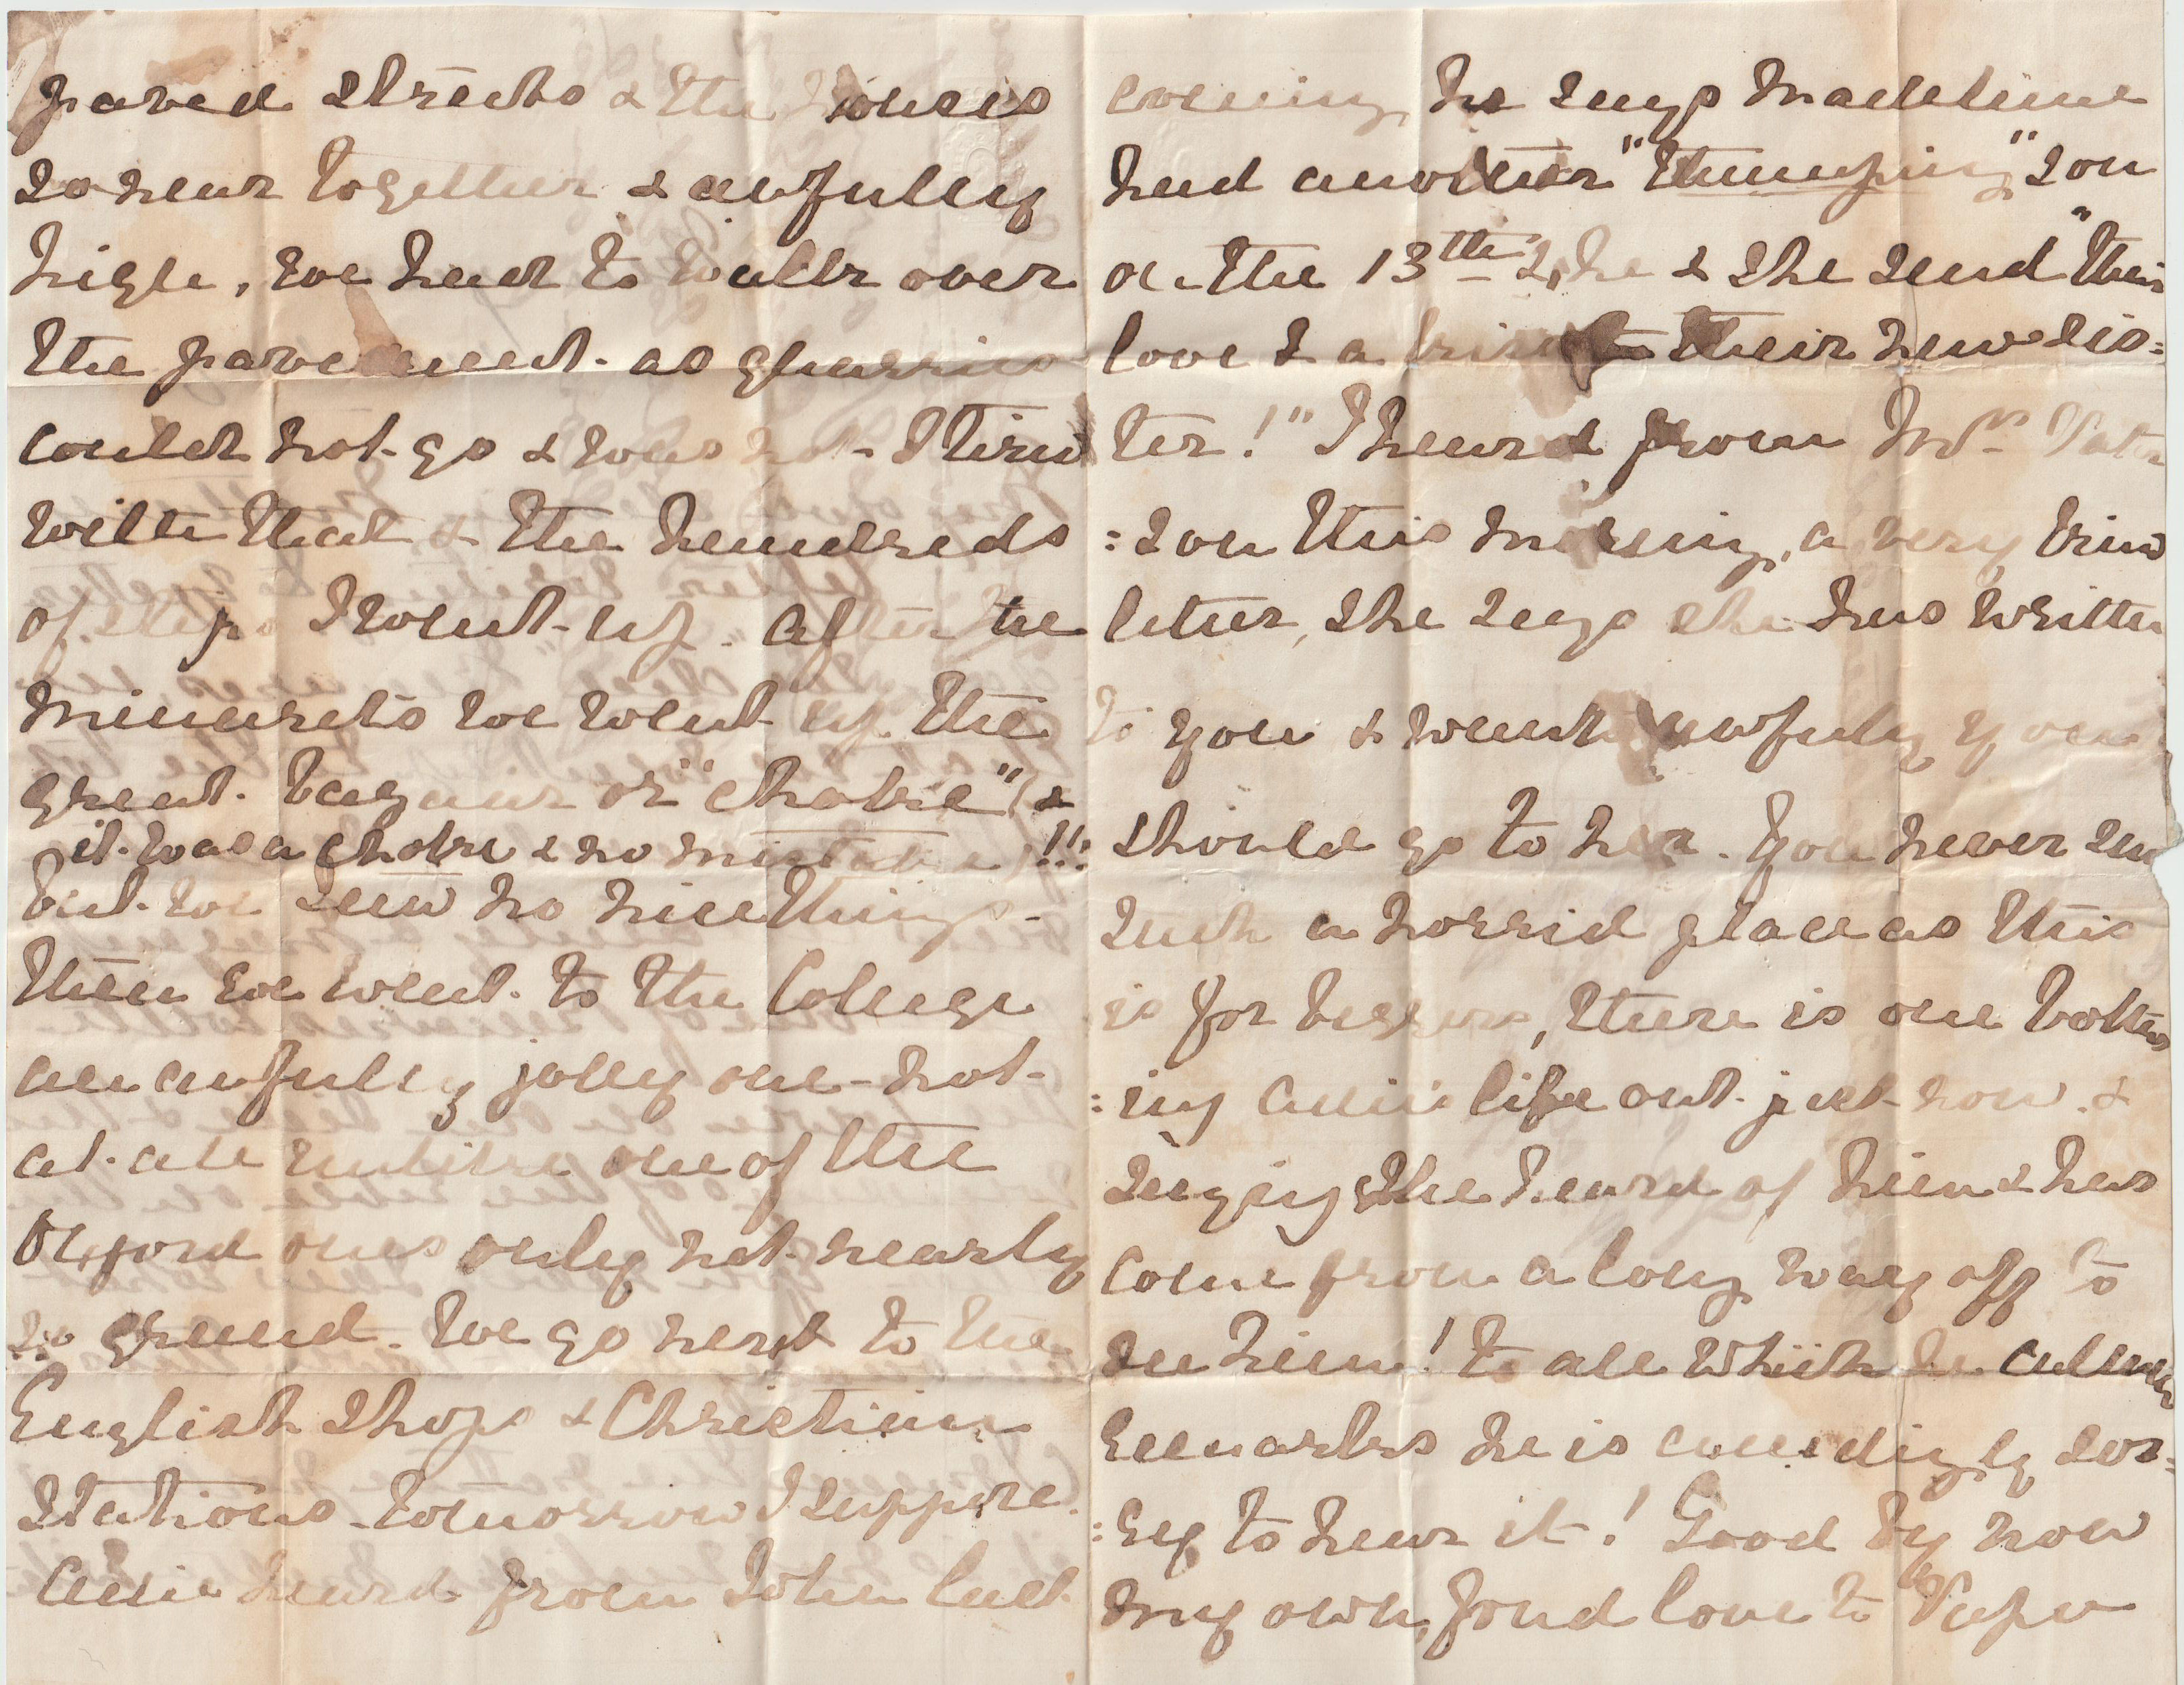 paved streets & the houses
so near together & awfully
high, we had to walk over
the pavement as gharries
could not go & was hot & tired
with that & the hundreds
of steps I went up. After the
minarets we went up the
great bazaar or "choke" (&
it was a choke & no mistake)!!!
but we saw no nice things -
then we went to the College
an awfully jolly one - not
at all unlike one of the
Oxford ones only not nearly
so grand. We go next to the
English shops & Christian
stations tomorrow I suppose.
heard from John last
evening, he says Madeline
had another "thumping" son
on the 13th, he & she send "their
love & a kiss to their new sis=
ter!" I heard from Mrs Pater
=son this morning, a very kind
letter, she says she has written
to you & wants awfully you
should go to her. You never saw
such a horrid place as this
is for beggars, there is one bother
=ing life out just now &
saying she heard of him & has
come from a long way off to
see him! to all which he calmly
remarks he is exceedingly sor=
=ry to hear it! Good by now
my own, fond love to Papa